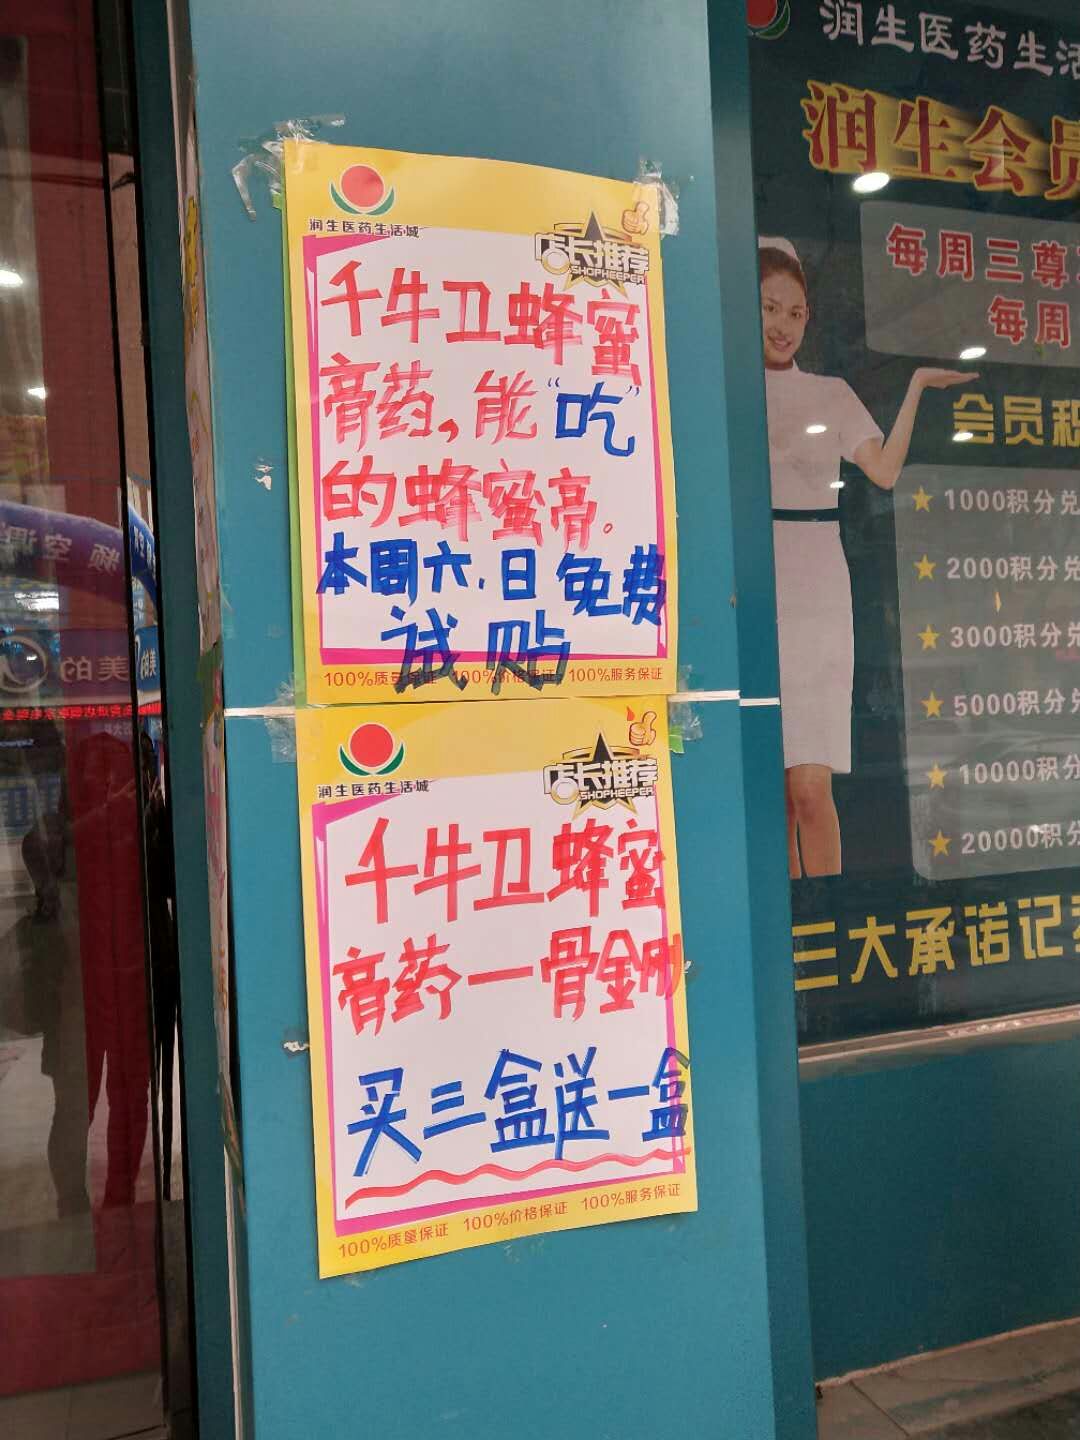 润生医药生活城
店长推荐
SHOPKEEPER
千牛卫蜂蜜
膏药，能“吃”
的蜂蜜膏。
本周六、日免费
试贴
100%质量保证 100%价格保证 100%服务保证
润生医药生活城
店长推荐
SHOPKEEPER
千牛卫蜂蜜
膏药一骨金刚
买三盒送一盒
100%质量保证 100%价格保证 100%服务保证
润生医药生活
润生会员
每周三尊
每周
会员积
1000积分兑
2000积分兑
3000积分兑
5000积分兑
10000积分
20000积分
三大承诺记
频空调
美的